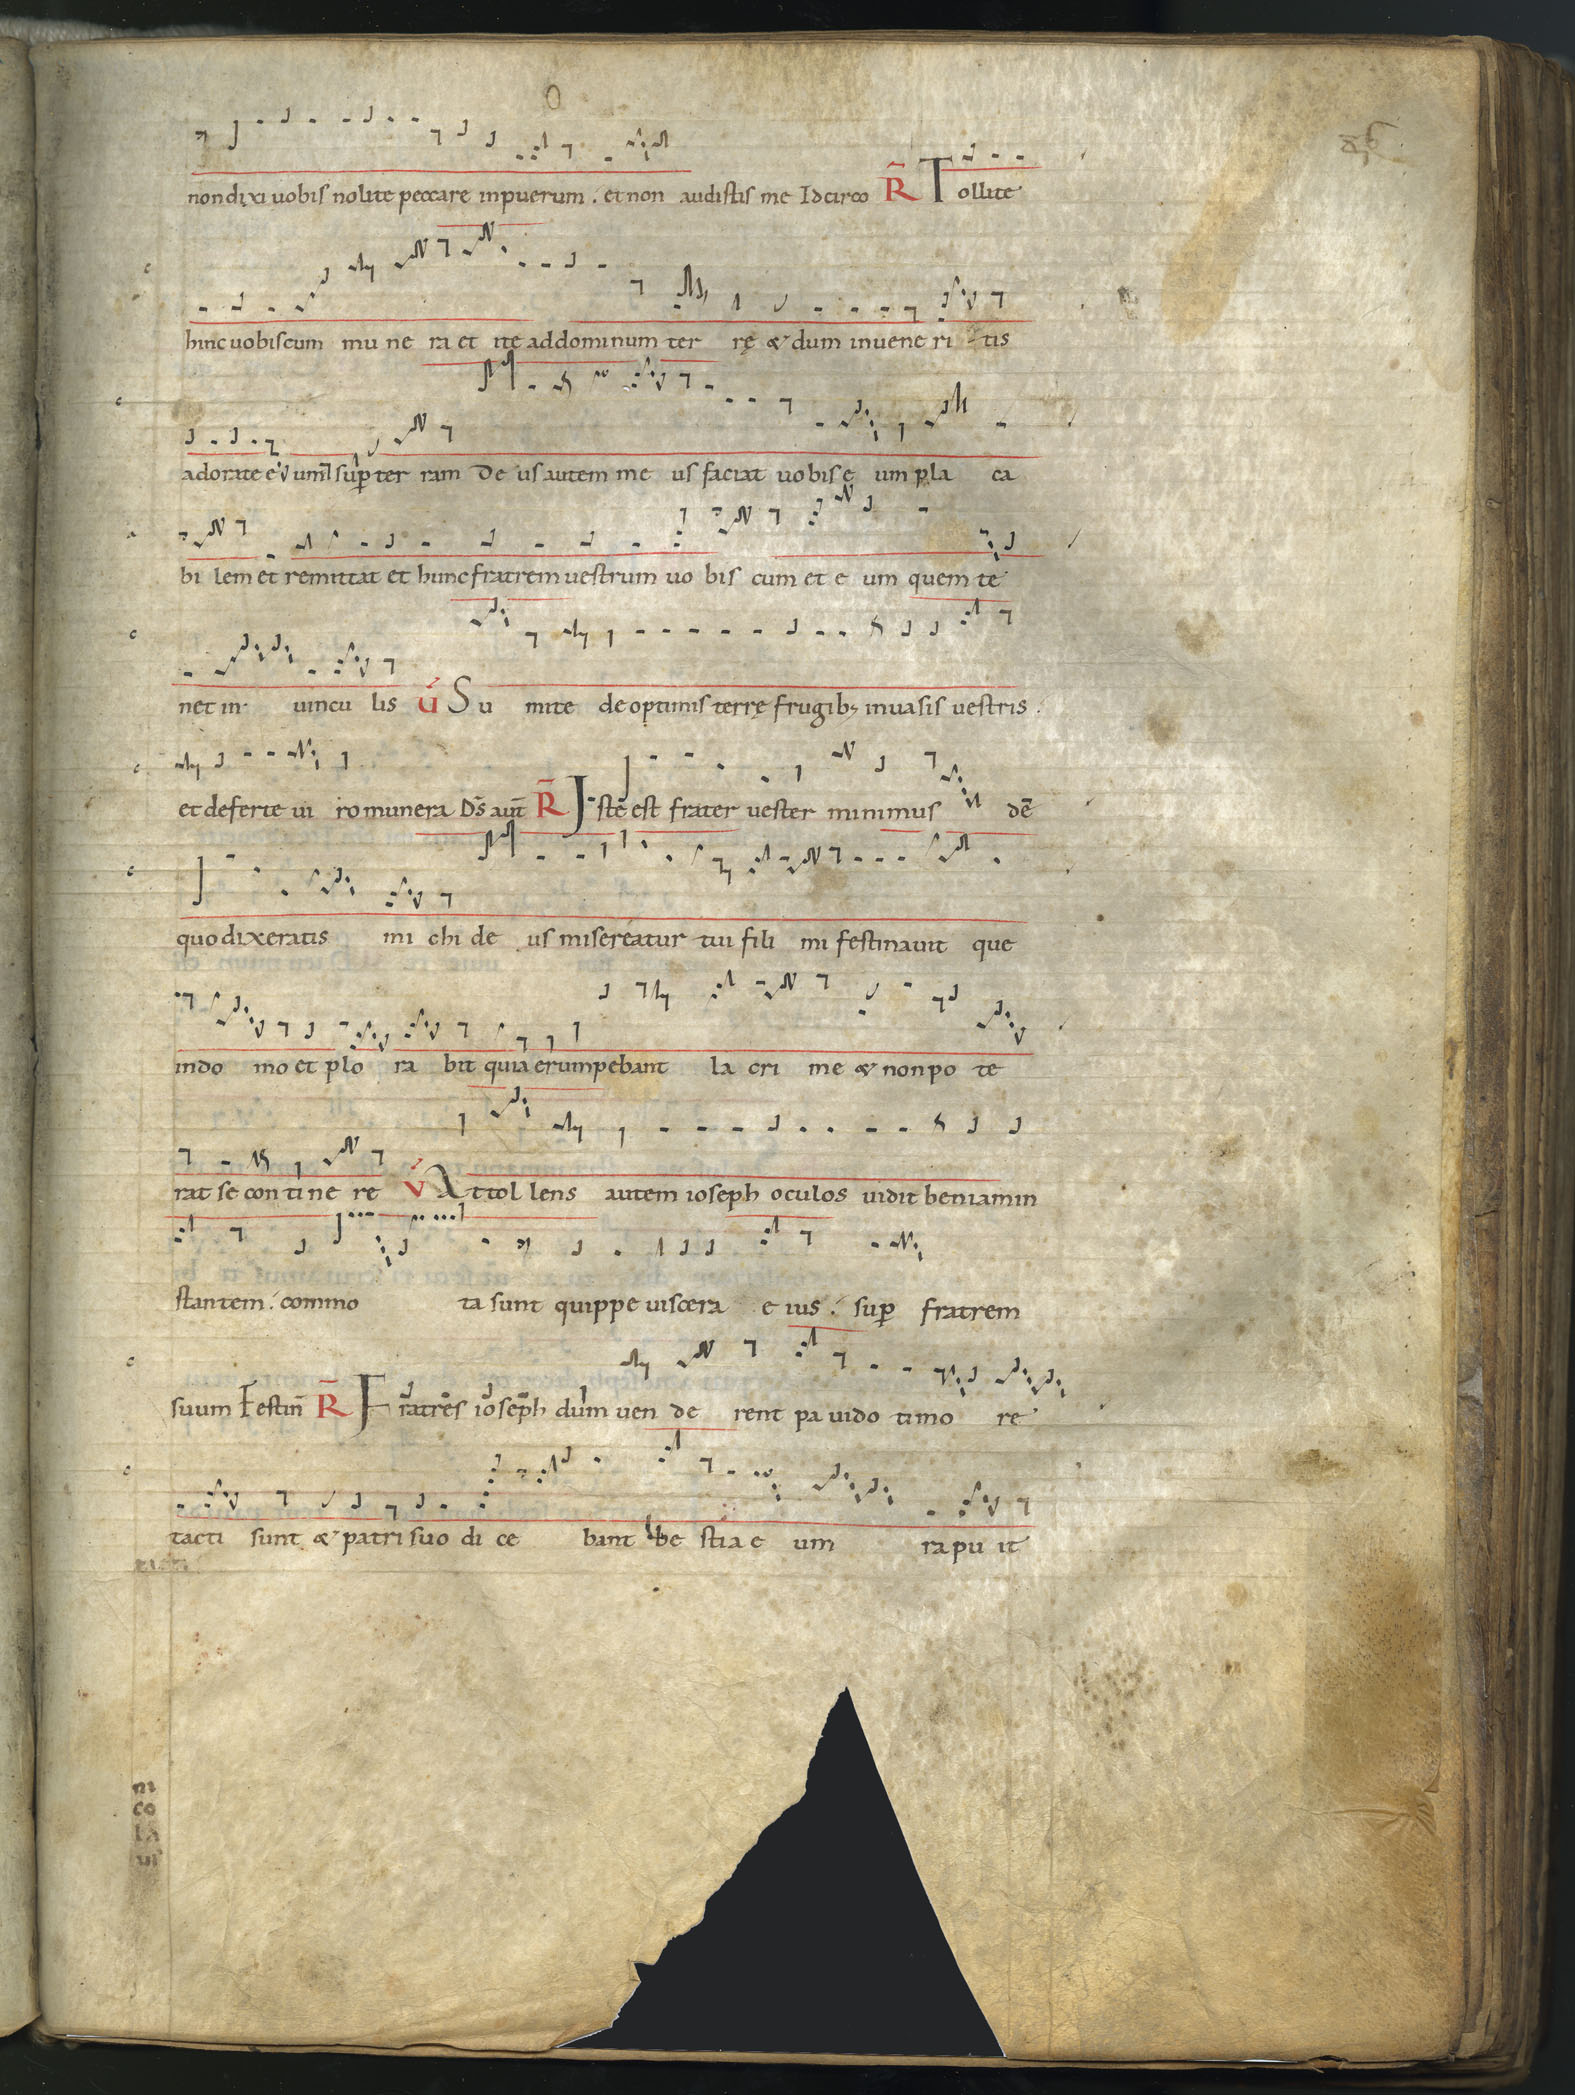 non dixi uobis nolite peccare inpuerum . et non audistis me Idcirco R̄ Tollite
hinc uobiscum mu ne ra et ite addominum ter rę & dum inuene ri tis
adorate ter ram De us autem me us faciat uobis e um pla ca
bi lem et remittat et hunc fratrem uestrum uo bis cum et e um quem te
net in uincu lis V́ Su mite de optimis terrę frugib; inuasis uestris .
et deferte ui ro munera Ds̄ aut̄ R̄ Iste est frater uester minimus dē
quo dixeratis mi chi de us misereatur tui fili mi festinauit que
indo mo et plo ra bit quia erumpebant la cri me & non po te
rat se conti ne re V́ Attol lens autem ioseph oculos uidit beniamin
stantem . commo ta sunt quippe uiscera e ius . sup̄ fratrem
suum Festin̄ R̄ Fratres ioseph dum uen de rent pa uido timo re
tacti sunt & patri suo di ce bant be stia e um rapu it
ni
co
la